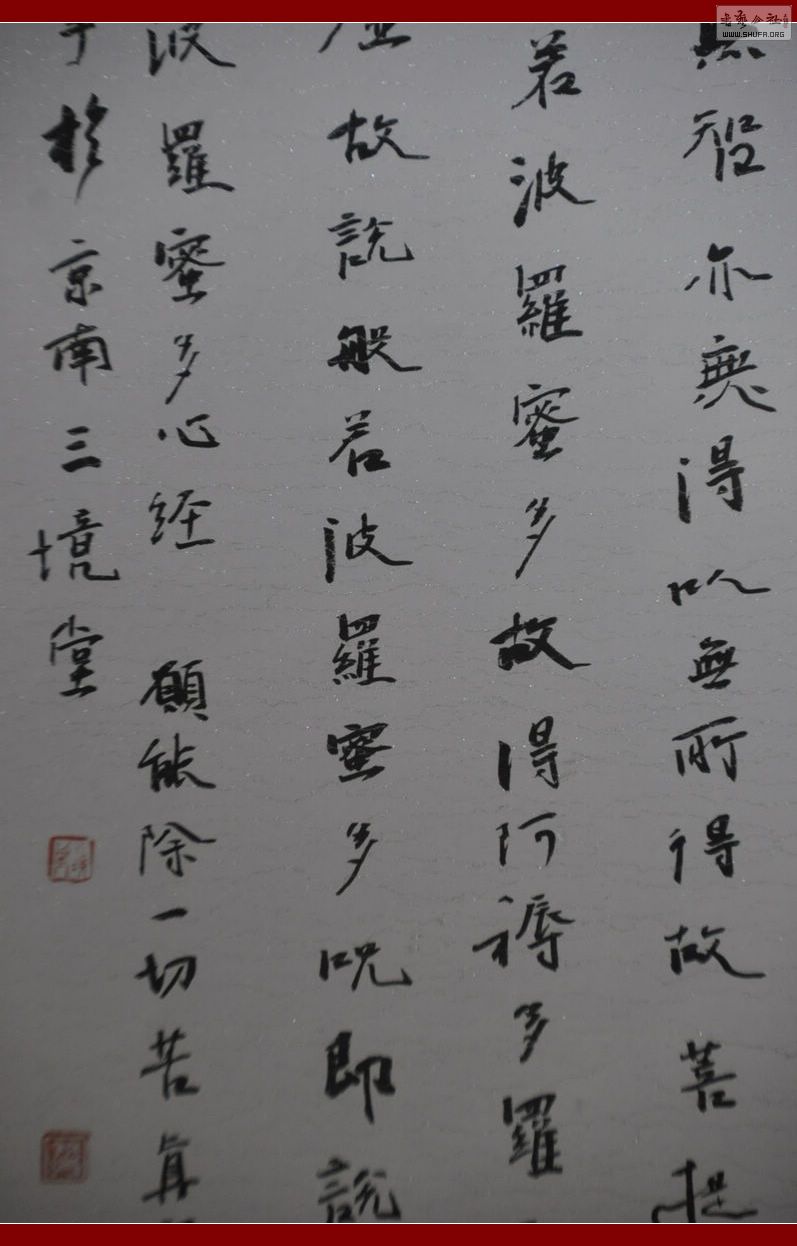 無智亦無得以無所得故菩提
若波羅蜜多故得阿耨多羅
虛故說般若波羅蜜多咒即說
波羅蜜多心經 願能除一切苦真
于於京南三境堂
WWW.SHUFA.ORG